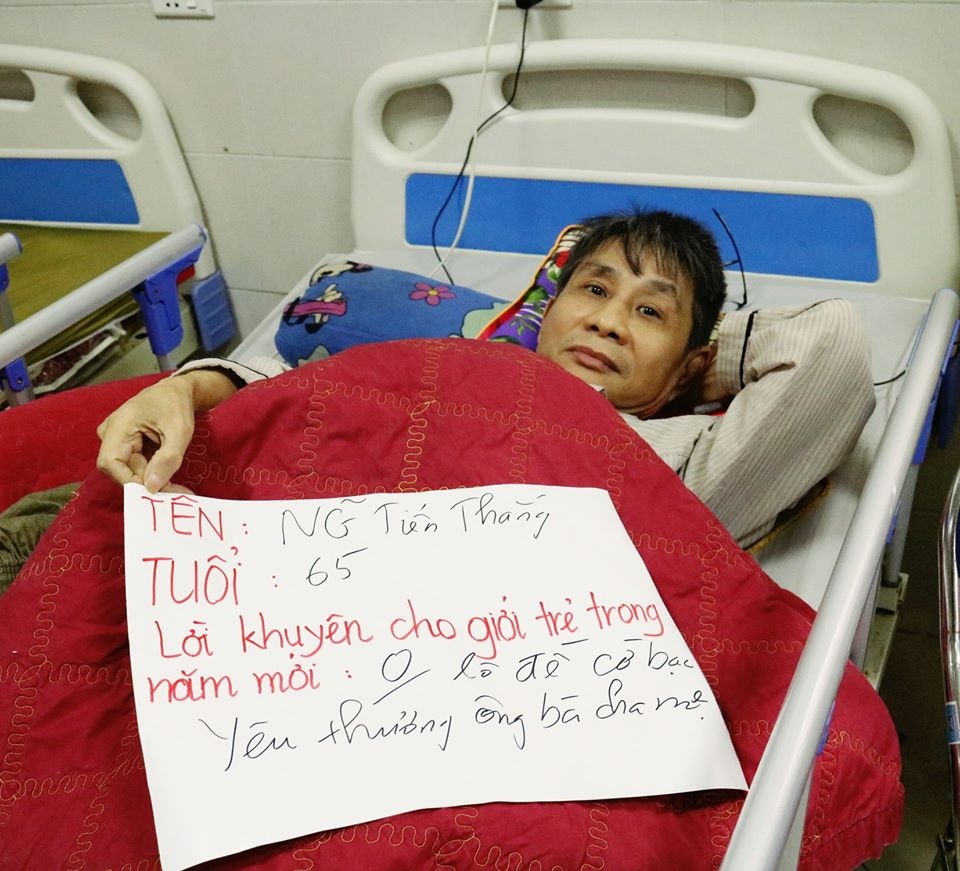 TÊN : NG̃ Tiến Thắng
TUỔI : 65
Lời khuyên cho giới trẻ trong
năm mới : 0 lô đề cờ bạc
Yêu thương ông bà cha mẹ.